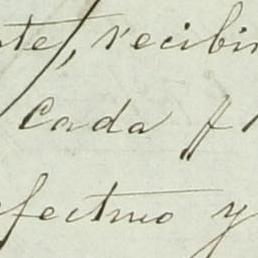 te, recibi
Cada
efectivo y